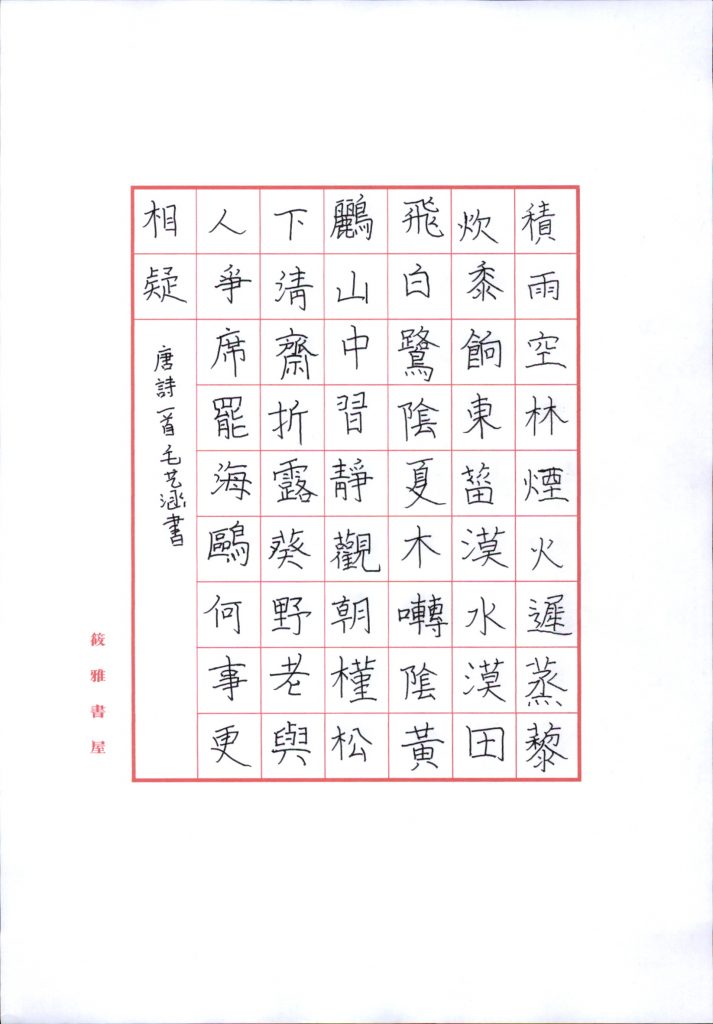 積雨空林煙火遲蒸黎
炊黍餉東菑漠水漠田
飛白鷺陰夏木囀陰黃
鸝山中習靜觀朝槿松
下清齋折露葵野老與
人爭席罷海鷗何事更
相疑
唐詩一首毛艺涵書
筱雅書屋